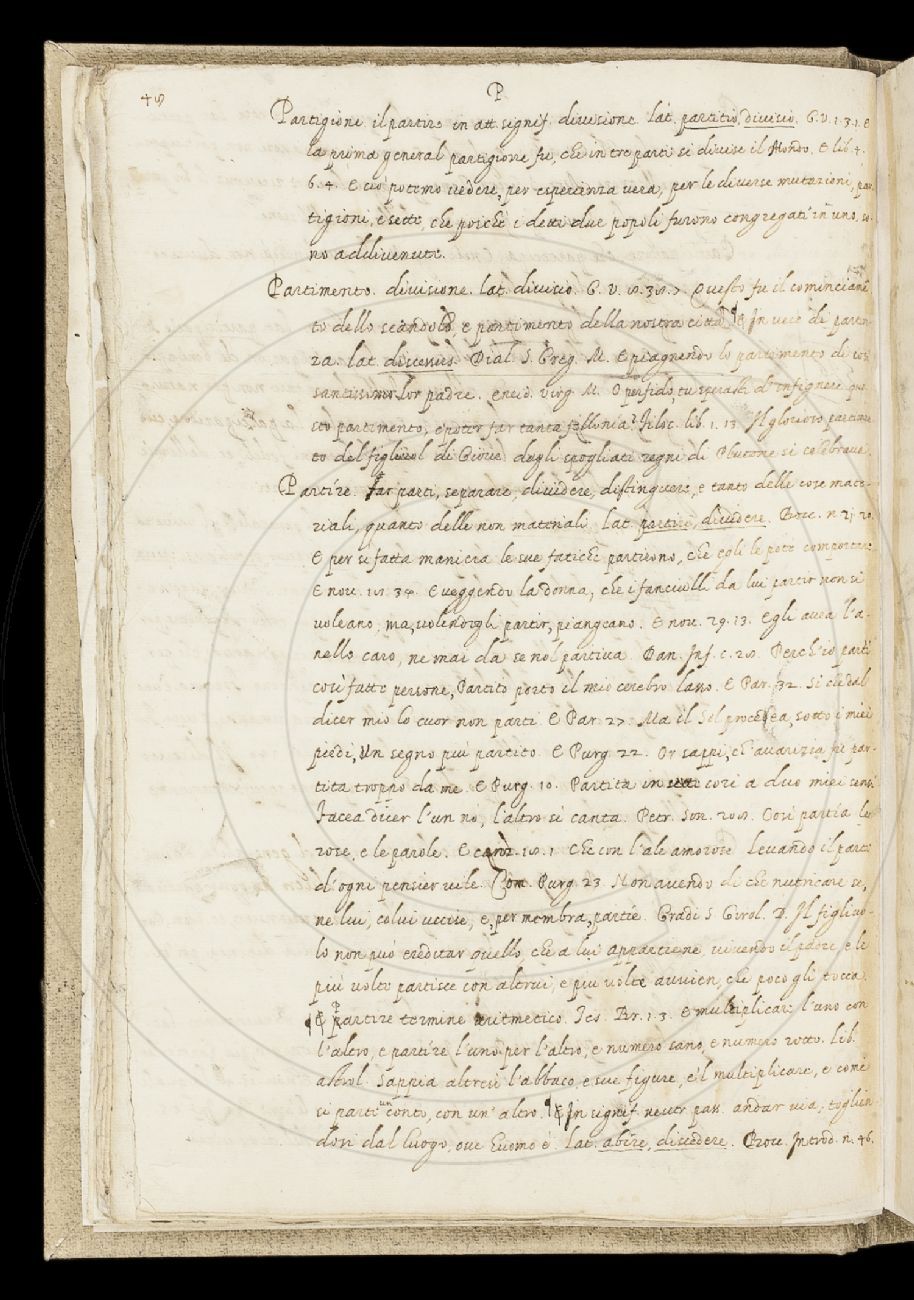 48
P
Partigione il partire in att. signif. divisione. lat. partitio, divisio. G. V. 1. 3. 1. E
la prima general partigione fu, che in tre parti si divise il Mondo. E lib. 4.
6. 4. E ciò potemo vedere, per esperienza vera, per le diverse mutazioni, par
tigioni, e sette, che poichè i detti due popoli furono congregati in uno, so-
no addivenute.
Partimento. divisione. lat. divisio. G. V. 8. 38. 7 Questo fu il cominciam
to dello scandolo, e partimento della nostra città. ¶ In vece di parten
za. lat. discessus. Dial. S. Greg. M. E piagnendo lo partimento di così
santissimo lor padre. Eneid. Virg. M. O perfido, tu speravi d'infignere que
sto partimento, e poter far tanta fellonia? Filoc. lib. 1. 13 Il glorioso partime
to del figliuol di Giove dagli spogliati regni di Plutone si celebrava.
Partire. Far parti, separare, dividere, distinguere, e tanto delle cose mate-
riali, quanto delle non materiali. Lat. partiri, dividere. Bocc. n. 21. 20.
E per sì fatta maniera le sue fatiche partirono, che egli le potè comportare.
E nov. 18. 34. E veggendo la donna, che i fanciulli da lui partir non si
voleano, ma, volendogli partir, piangeano. E nov. 29. 13. Egli avea l'a-
nello caro, ne mai da se nol partiva. Dan. Inf. c. 28. Perch'io parti
così fatte persone, Partito porto il mio cerebro lasso. E Par. 32. Si che dal
dicer mio lo cuor non parti. E Par. 27. Ma il Sol procedea, sotto i miei
piedi, Un segno più partito. E Purg. 22. Or sappi, ch'avarizia fu par-
tita troppo da me. E Purg. 10. Partita in cori a duo miei sensi
Facea dicer l'un nò, l'altro sì canta. Petr. Son. 208. Così partia le
rose, e le parole. E canz. 18. 1 Che con l'ale amorose Levando il parte
d'ogni pensier vile. Com. Purg. 23 Non avendo di che nutricare se,
ne lui, colui uccise, e, per membra, partie. Gradi S. Girol. P. Il figliuo-
lo non può ereditar quello, che a lui appartiene, vivendo il padre, e le
più volte partisce con altrui, e più volte avvien, che poco gli tocca.
¶ E partire termine aritmetico. Tes. Br. 1. 3. E multiplicare l'uno con
l'altro, e partire l'uno per l'altro, e numero sano, e numero rotto. Lib.
astrol. Sappia altresì l'abbaco, e sue figure, e'l multiplicare, e come
si parte un conto, con un'altro. ¶ E In signif. neutr. pass. andar via, toglien-
dosi dal luogo, ove l'uomo è. lat. abire, discedere. Bocc. Introd. n. 46.